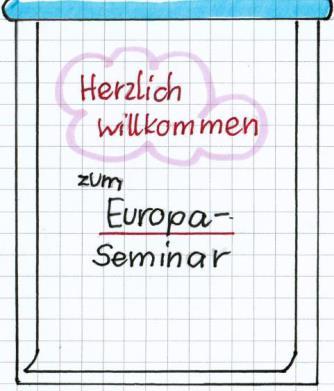 Herzlich
willkommen
zum
Europa-
Seminar